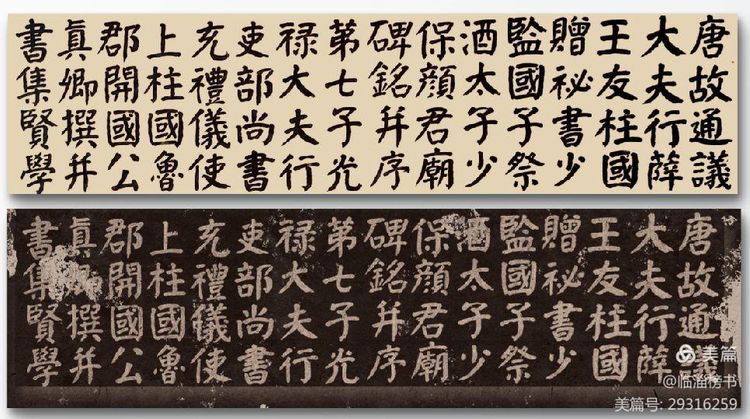 唐故通議
大夫行薛
王友柱國
贈祕書少
監國子祭
酒太子少
保顔君廟
碑銘并序
第七子光
禄大夫行
吏部尚書
充禮儀使
上柱國魯
郡開國公
真卿撰并
書集賢學
唐故通議
大夫行薛
王友柱國
贈祕書少
監國子祭
酒太子少
保顔君廟
碑銘并序
第七子光
禄大夫行
吏部尚書
充禮儀使
上柱國魯
郡開國公
真卿撰并
書集賢學
美篇
@临淄榜书
美篇号: 29316259